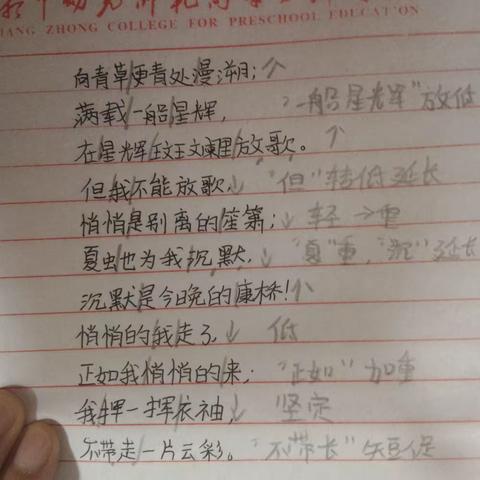 IANG ZHONG COLLEGE FOR PRESCHOOL EDUCATION
向青草/更青处漫溯;↗
满载/一船/星辉, "一船星辉"放低
在星辉/斑斓里/放歌。↗
但我/不能放歌↓ "但"转低延长
悄悄/是别离的/笙箫;↓ 轻→重
夏虫/也为我/沉默,↓ "夏"重,"沉"延长
沉默/是今晚的/康桥!↗
悄悄的/我走了,↓ 低
正如我/悄悄的/来; "正如"加重
我/挥一挥/衣袖,↓ 坚定
不带走/一片云彩。"不带长"短促